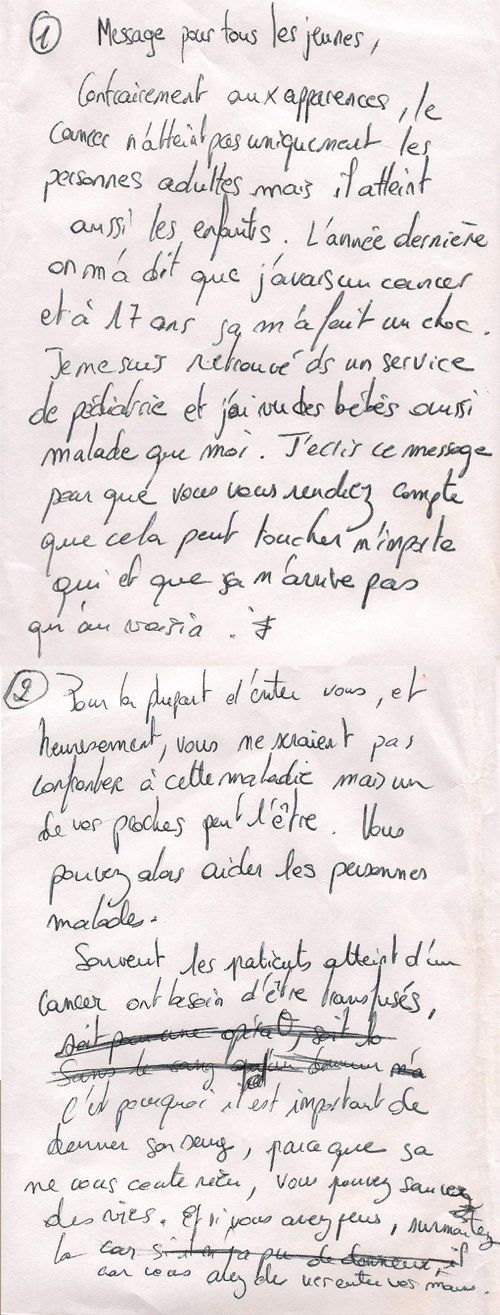 ① Message pour tous les jeunes,
Contrairement aux apparences, le
cancer n'atteint pas uniquement les
personnes adultes mais il atteint
aussi les enfants. L'année dernière
on m'a dit que j'avais un cancer
et à 17 ans ça m'a fait un choc.
Je me suis retrouvé ds un service
de pédiatrie et j'ai vu des bébés aussi
malade que moi. J'ecris ce message
pour que vous vous rendiez compte
que cela peut toucher n'importe
qui et que ça n'arrive pas
qu'au voisin.
② Pour la plupart d'entre vous, et
heureusement, vous ne seraient pas
confronter à cette maladie mais un
de vos proches peut l'être. Vous
pouvez alors aider les personnes
malades.
Souvent les patients atteint d'un
cancer ont besoin d'être transfusés,
soit pour une opérat°, soit
Sans le sang donneur m'a
C'est pourquoi il est important de
donner son sang, parce que ça
ne vous coute rien, vous pouvez sauvez
des vies. Et si vous avez peur, surmontez
la car si il n'y a pas de donneur, il
car vous allez des